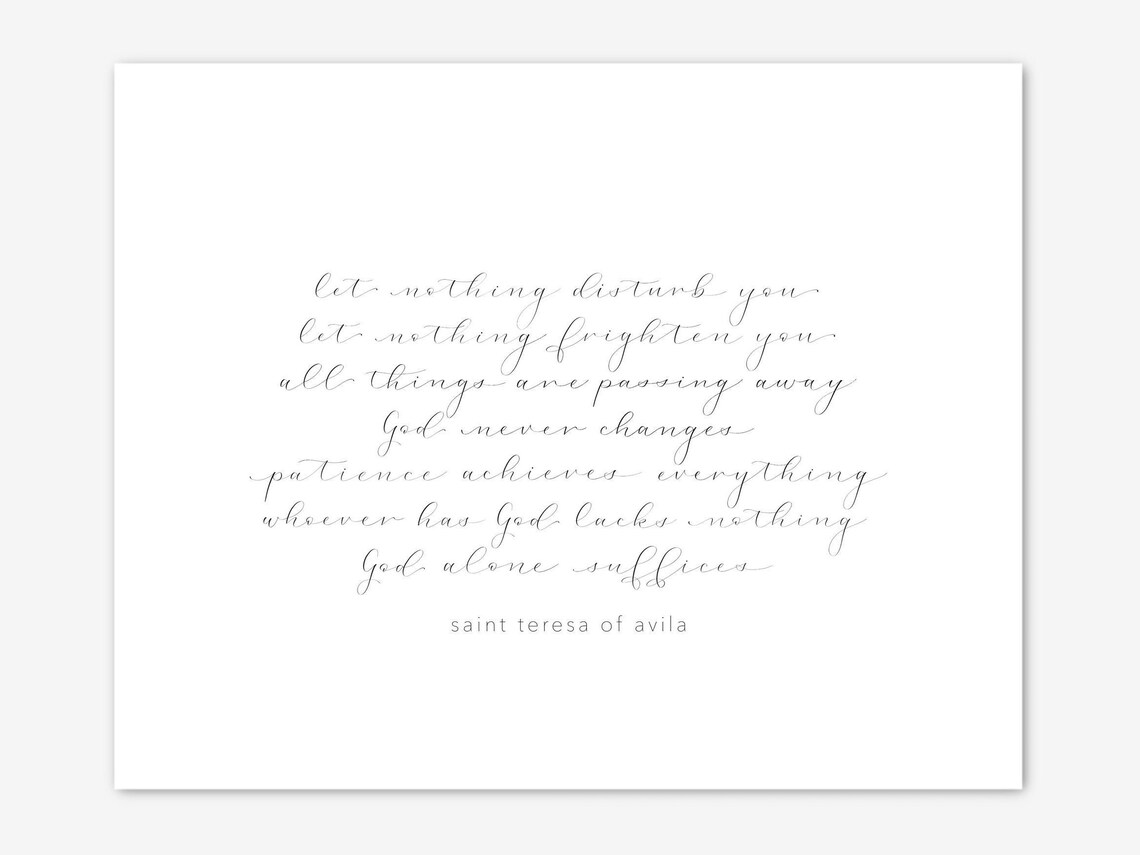 let nothing disturb you
let nothing frighten you
all things are passing away
God never changes
patience achieves everything
whoever has God lacks nothing
God alone suffices
saint teresa of avila